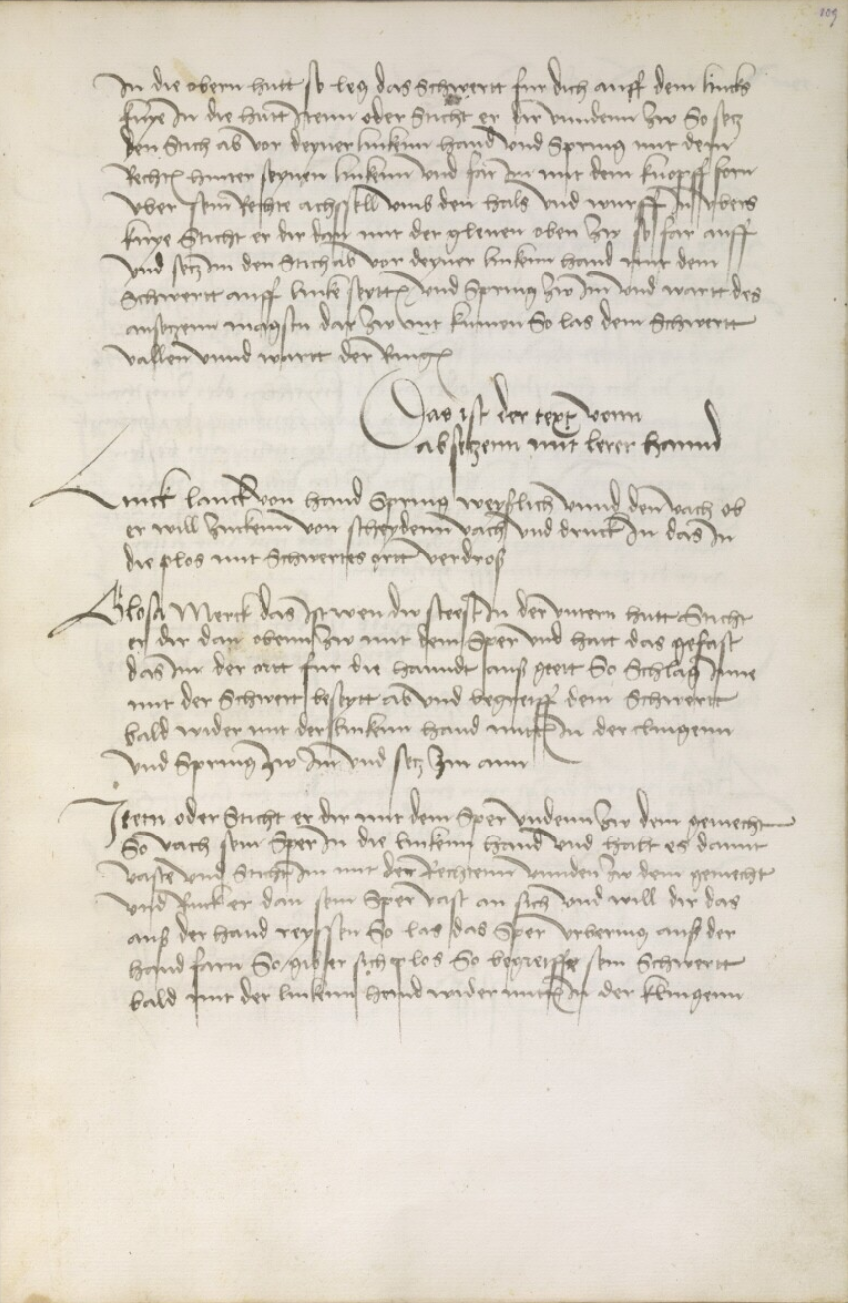 109
In die obern hutt so leg das schwertt fur dich auff dem lincks
knye In die hutt Item oder Sticht er dir vnndenn zw So setz
den Stich ab vor deyner linkenn hand vnd Spring mit dem
Rechten hinter seynen linkenn vnd far Im mit dem knopff forn
vber sein Rechte achssell vmb den hals vnd wurff In vbers
knye Sticht er dir dan mit der glenen oben zw so far auff
vnd setz Im den Stich ab vor deyner linkenn hand mit dem
Schwertt auff linke seytten vnd Spring zw Im vnd wartt des
ansetzenn magstu dar zw nit kumen So las dem Schwertt
vallen vnnd wartt der Ringen
Das ist der text vonn
absetzenn mit lerer hannd
Linck lanck von hand Spring weyslich vnnd den vach ob
er will zuckenn von scheydenn vach vnd druck In das In
die plos mit Schwertes ortt verdros
Glosa Merck das Ist wen dw steest In der vntern hutt Sticht
er dir dan obenn zw mit dem Sper vnd hatt das gefast
das Im der ortt fur die hanndt aus geett So Schlag Ime
mit der Schwert beseytt ab vnd begreiff dem Schwertt
bald wider mit der linkenn hand mitten In der clingenn
vnd Spring zw Im vnd setz Im ann
Item oder Sticht er dir mit dem Sper vndenn zw dem gemecht
So vach sein Sper In die linkenn hand vnd halt es damit
vaste vnd Stich Im mit der Rechtenn vnnden zw dem gemecht
vnd Ruck er dan sein Sper vast an sich vnd will dir das
aus der hand reyssen So las das Sper vrbering aus der
hand farn So gib er sich plos So begreiffe sein Schwertt
bald mit der linkenn hennd wider mitten In der klingenn